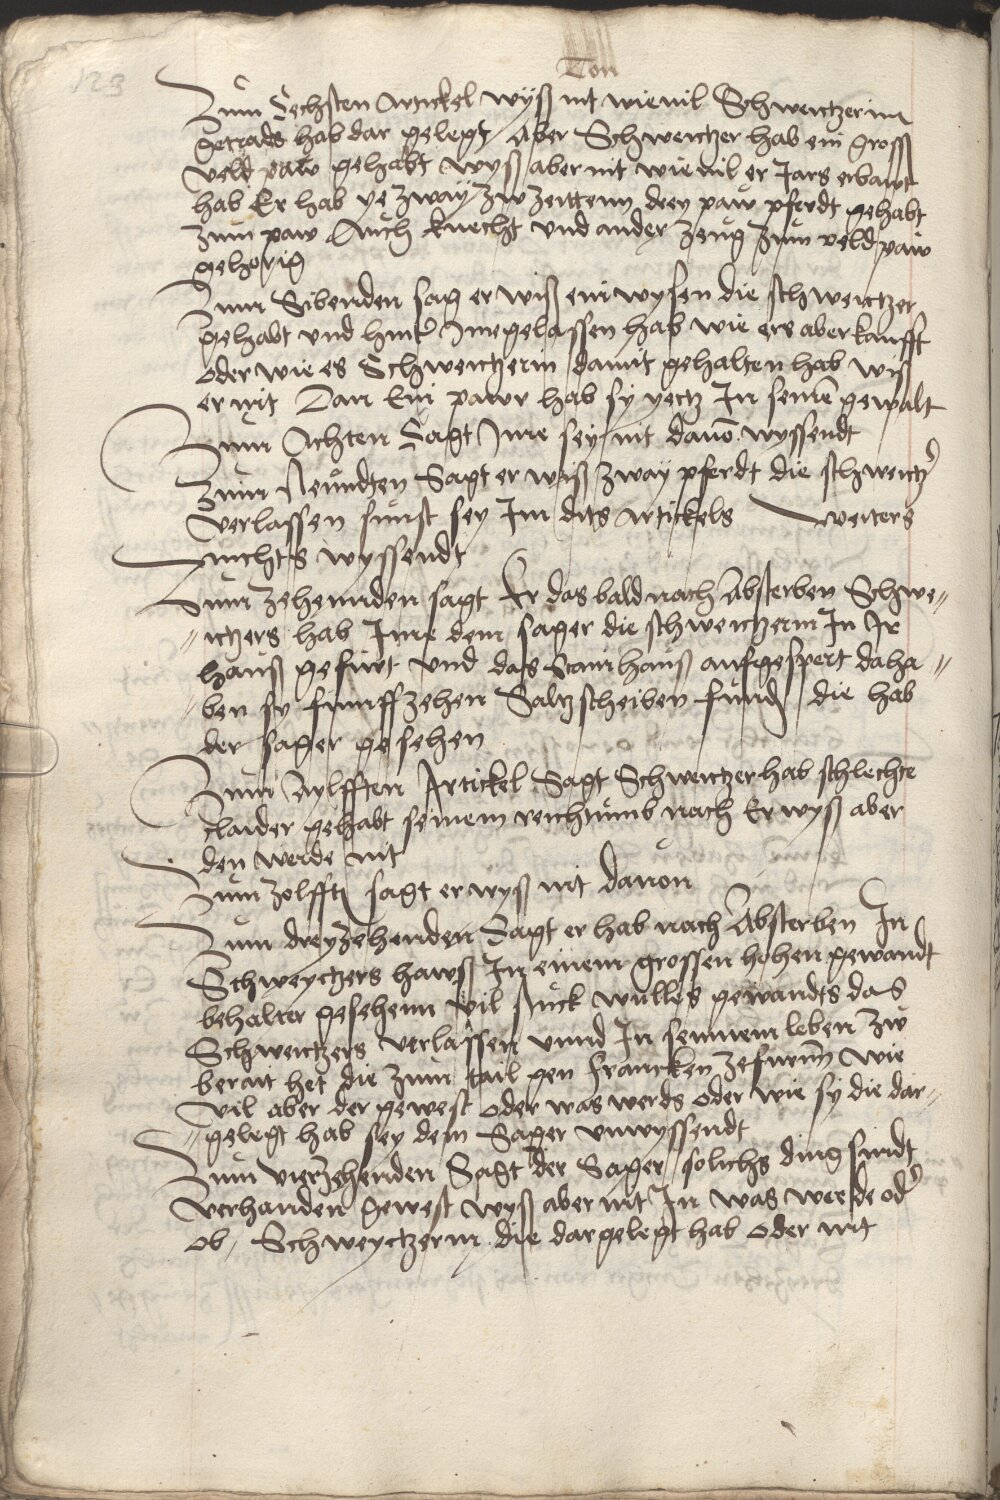 123
Zum Sechsten Artickel wyß nit wieuil Schwertzerin
getrads hab dar gelegt / Aber Schwertzer hab ein groß
veld paw gehabt wyß aber nit wieuil er Jars erbawt
hab Er hab ye zway zw zeittenn drey paw pferdt gehabt
zum paw Auch knecht vnd ander zeug zum veld paw
gehorig
Zum Sibenden sag er wiß ein wysen die schwertzer
gehabt vnd hintr Ime gelassen hab wie ers aber kaufft
oder wie es Schwertzerin damit gehalten hab wiß
er nit Dan Ein pawr hab sy yetz In seinē gewalt
Zum Achten Sagt Ime sey nit dauō wyssendt
Zum Neundten Sagt er wiß zway pferdt die schwertzr
verlassen sunst sey Im dits artickels weiters
nichts wyssendt
Zum zehennden sagt Er das bald nach Absterben Schwe=
=rtzers hab Ime dem sager die schwertzerin In Ir
hauß gefurt vnd das Stainhauß aufgespert daha=
=ben sy funffzehen Saltzscheiben fundn die hab
der sager gesehen
Zum Aylfften Artickel Sagt Schwertzer hab schlechte
claider gehabt seinem reichtumb nach Er wyß aber
den werde nit
Zum zolfftn sagt er wyß nit dauon
Zum dreyzehenden Sagt er hab nach Absterben In
Schweytzers hawß In einem grossen hohen gewandt
behalter gesehenn vil stuck wulles gewandts das
Schwertzers verlassen vnnd In seinnem leben zw
berait het die zum tail gen francken zefurnn wie
vil aber der gewest oder was werds oder wie sy die dar=
=gelegt hab sey dem Sager vnwyssendt
Zum vierzehenden Sagt der Sager solichs ding sindt
verhanden gewest wyß aber nit In was werde odr
ob Schweytzerin die dargelegt hab oder nit